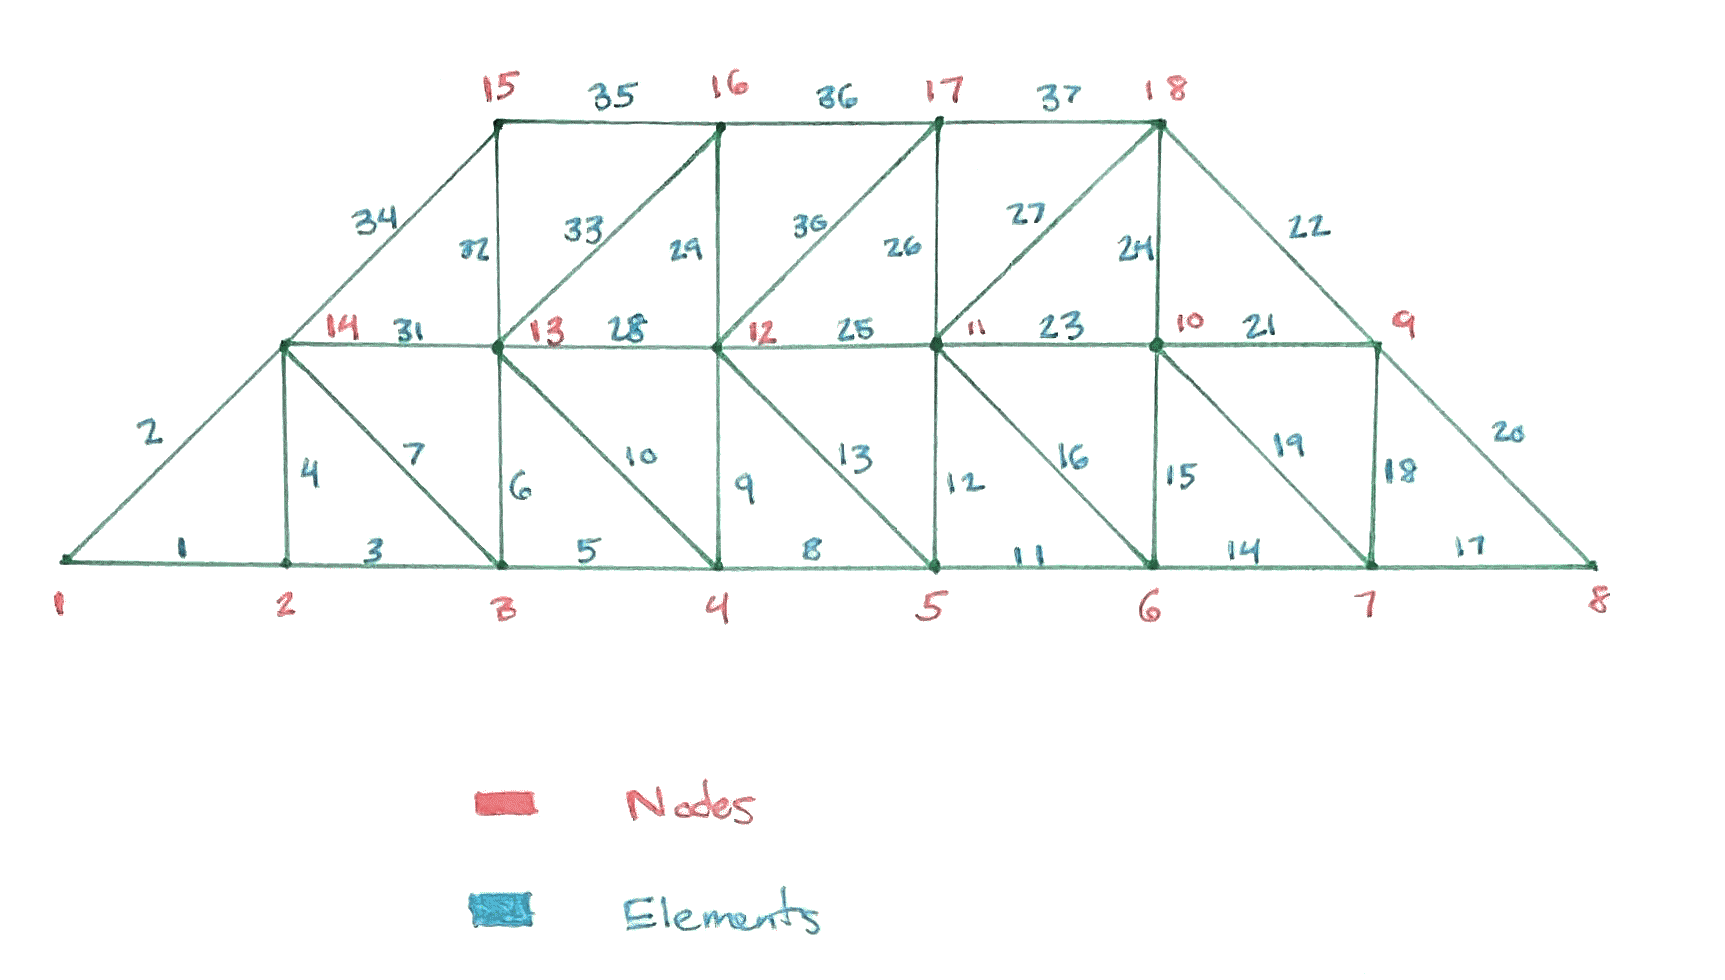 15 35 16 36 17 37 18
34 32 33 29 30 26 27 24 22
14 31 13 28 12 25 11 23 10 21 9
2 4 7 6 10 9 13 12 16 15 19 18 20
1 3 5 8 11 14 17
1 2 3 4 5 6 7 8
Nodes
Elements